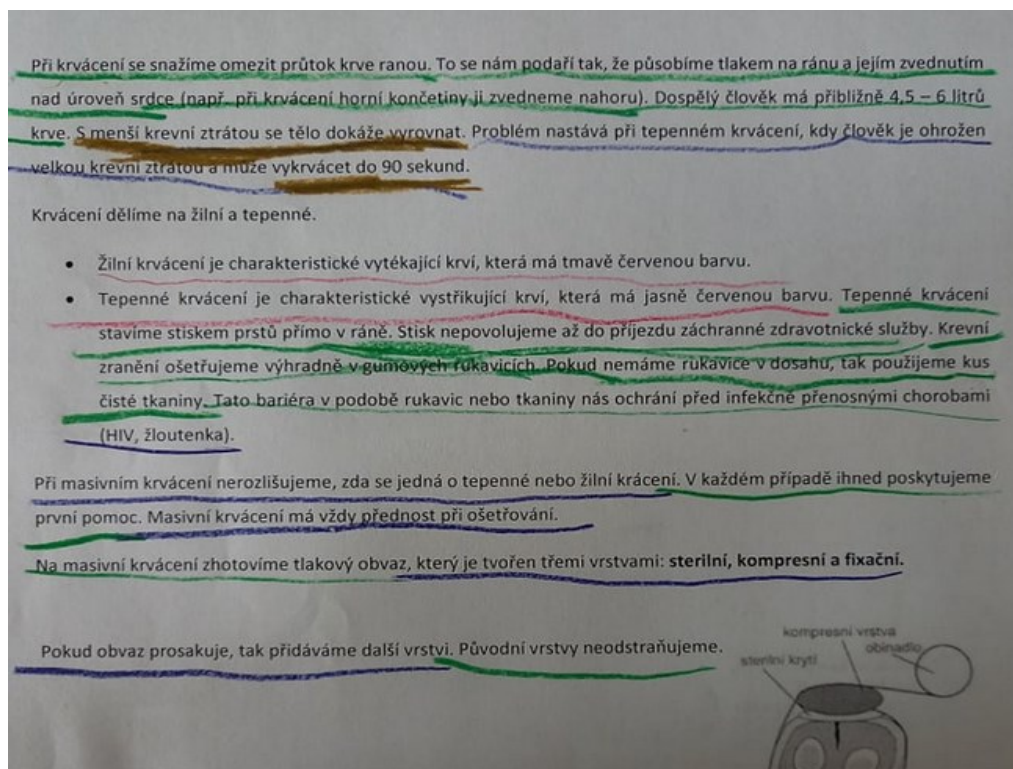 Při krvácení se snažíme omezit průtok krve ranou. To se nám podaří tak, že působíme tlakem na ránu a jejím zvednutím
nad úroveň srdce (např. při krvácení horní končetiny ji zvedneme nahoru). Dospělý člověk má přibližně 4,5 – 6 litrů
krve. S menší krevní ztrátou se tělo dokáže vyrovnat. Problém nastává při tepenném krvácení, kdy člověk je ohrožen
velkou krevní ztrátou a může vykrvácet do 90 sekund.
Krvácení dělíme na žilní a tepenné.
• Žilní krvácení je charakteristické vytékající krví, která má tmavě červenou barvu.
• Tepenné krvácení je charakteristické vystřikující krví, která má jasně červenou barvu. Tepenné krvácení
stavíme stiskem prstů přímo v ráně. Stisk nepovolujeme až do příjezdu záchranné zdravotnické služby. Krevní
zranění ošetřujeme výhradně v gumových rukavicích. Pokud nemáme rukavice v dosahu, tak použijeme kus
čisté tkaniny. Tato bariéra v podobě rukavic nebo tkaniny nás ochrání před infekčně přenosnými chorobami
(HIV, žloutenka).
Při masivním krvácení nerozlišujeme, zda se jedná o tepenné nebo žilní krácení. V každém případě ihned poskytujeme
první pomoc. Masivní krvácení má vždy přednost při ošetřování.
Na masivní krvácení zhotovíme tlakový obvaz, který je tvořen třemi vrstvami: sterilní, kompresní a fixační.
Pokud obvaz prosakuje, tak přidáváme další vrstvi. Původní vrstvy neodstraňujeme.
kompresní vrstva
obinadlo
sterilní krytí